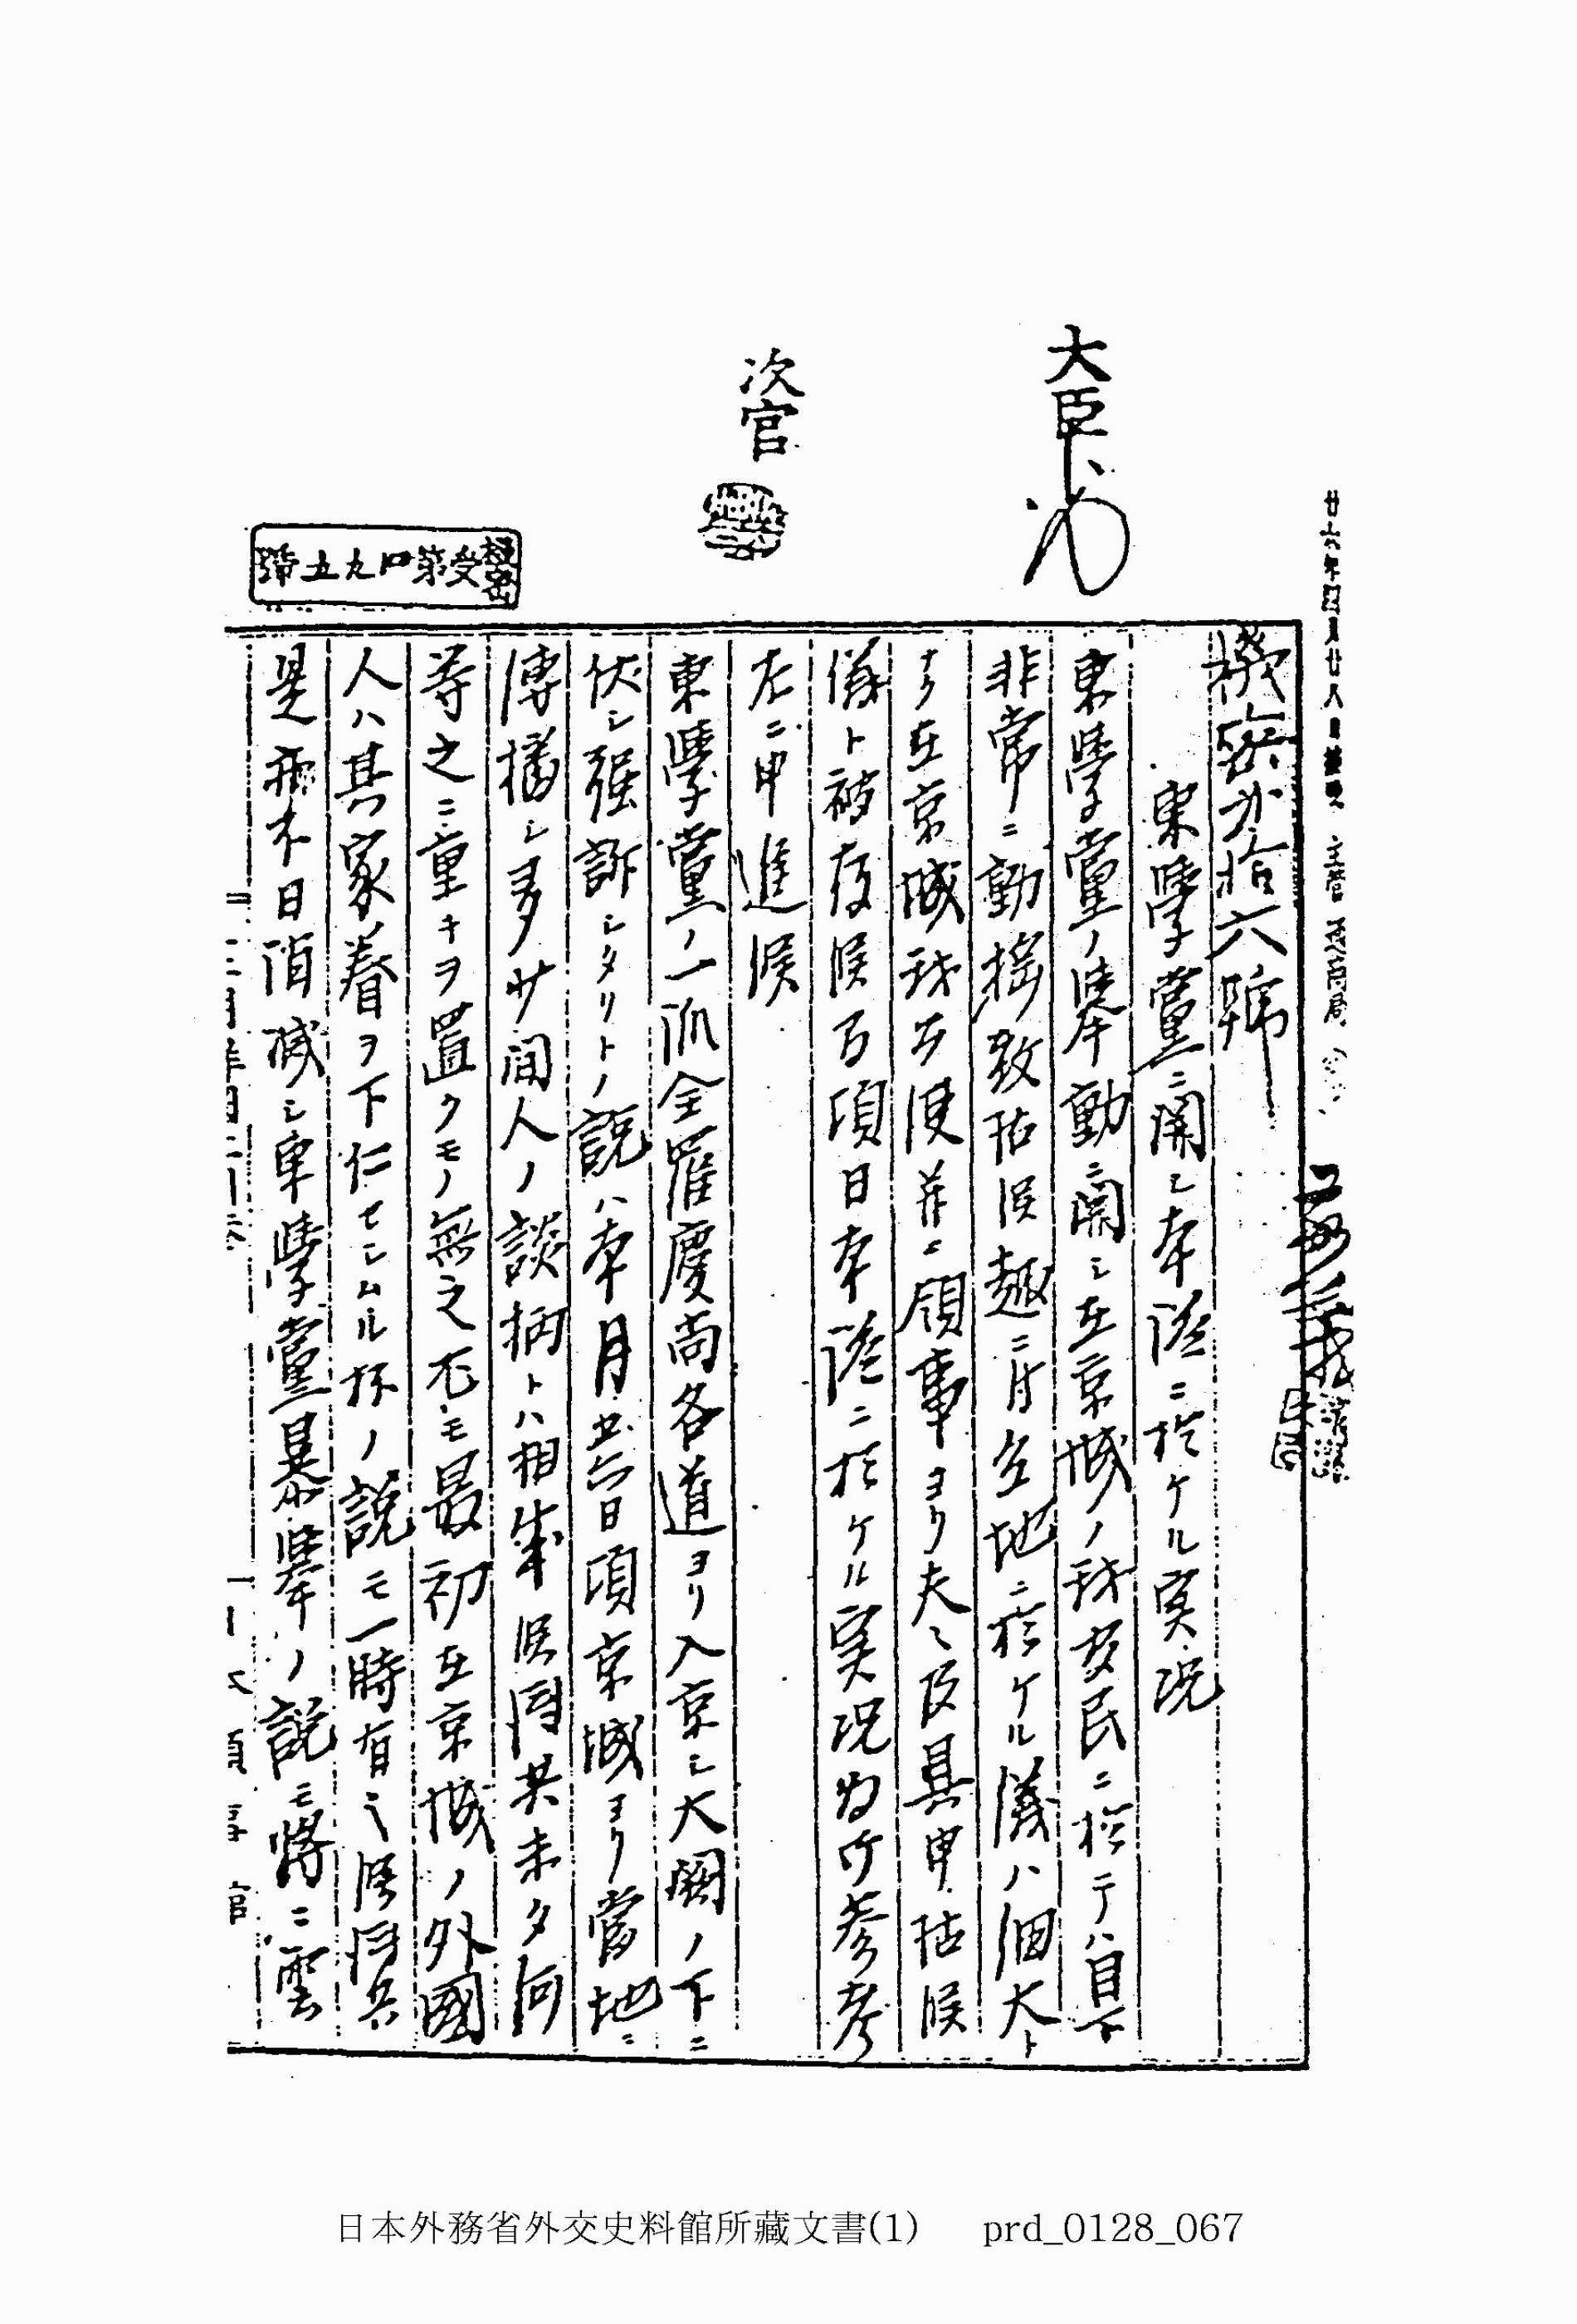 廿六年四月廿八日接受 主管 通商局
大臣
次官
機密受第四九五號
機密第拾六號
東學黨ニ関シ本港ニ於ケル実况
東學黨ノ挙動ニ関シ在京城ノ我居民ニ於テハ目下
非常ニ動揺致居候趣ニ付各地ニ於ケル儀ハ細大ト
ナク在京城我公使并ニ領事ヨリ夫々及具申居候
儀ト被存候乃項日本港ニ於ケル実况為御参考
左ニ申進候
東學黨ノ一派全羅慶尚各道ヨリ入京シ大闕ノ下ニ
伏シ强訴シタリトノ説ハ本月 日頃京城ヨリ當地ニ
傳播シ多少間人ノ談柄トハ相成候得共未タ何
等之ニ重キヲ置クモノ無之尤モ最初在京城ノ外國
人ハ其家眷ヲ下仁セシムル抔ノ説モ一時有之候得共
是亦不日消滅シ東學黨暴挙ノ説モ將ニ雲
日本外務省外交史料館所藏文書(1) prd_0128_067